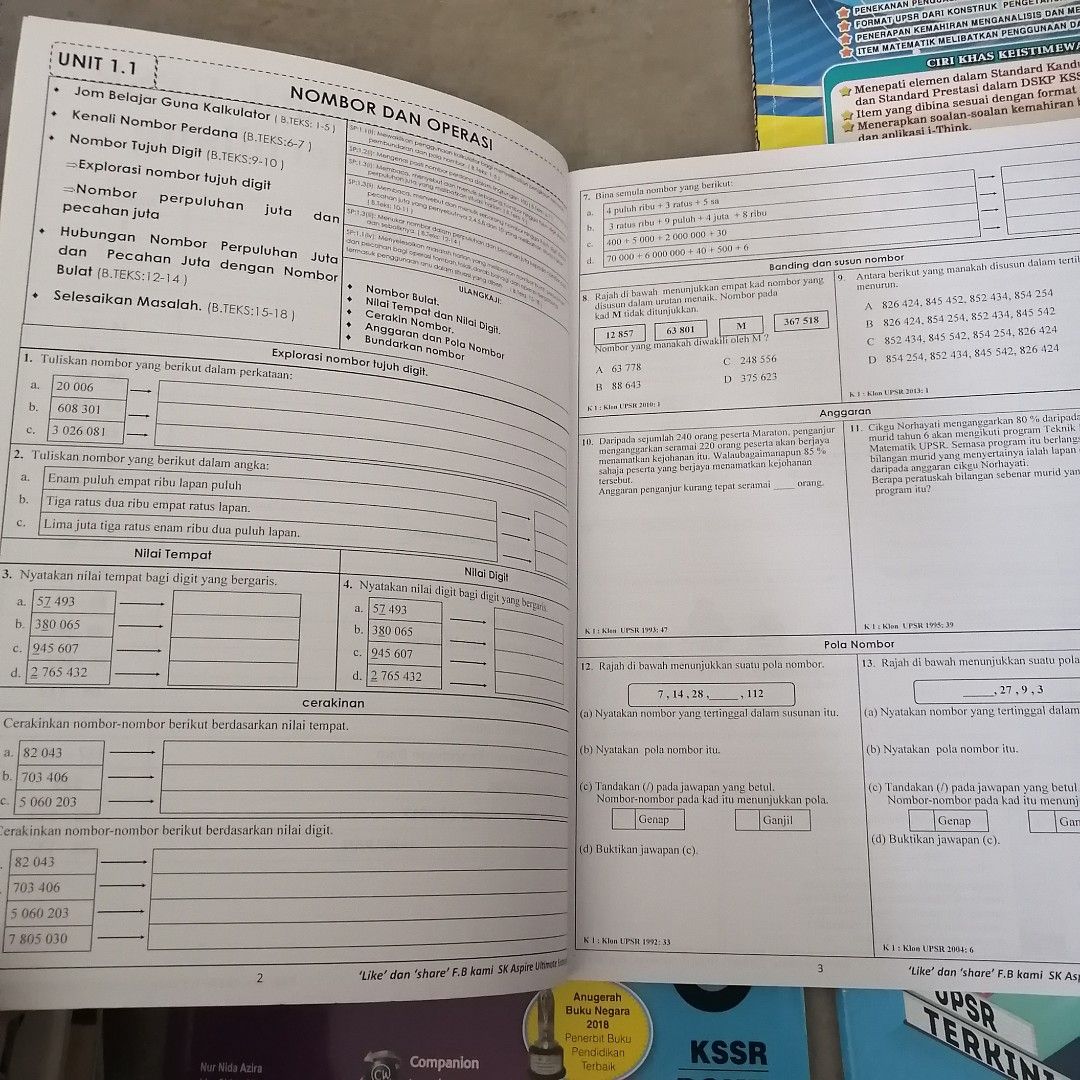 UNIT 1.1
NOMBOR DAN OPERASI
• Jom Belajar Guna Kalkulator ( B.TEKS: 1-5 )
• Kenali Nombor Perdana (B.TEKS:6-7 )
• Nombor Tujuh Digit (B.TEKS:9-10 )
⇒Explorasi nombor tujuh digit
⇒Nombor perpuluhan juta dan
pecahan juta
• Hubungan Nombor Perpuluhan Juta
dan Pecahan Juta dengan Nombor
Bulat (B.TEKS:12-14 )
• Selesaikan Masalah. (B.TEKS:15-18 )
ULANGKAJI:
• Nombor Bulat.
• Nilai Tempat dan Nilai Digit.
• Cerakin Nombor.
• Anggaran dan Pola Nombor
• Bundarkan nombor
Explorasi nombor tujuh digit.
1. Tuliskan nombor yang berikut dalam perkataan:
a. 20 006
b. 608 301
c. 3 026 081
2. Tuliskan nombor yang berikut dalam angka:
a. Enam puluh empat ribu lapan puluh
b. Tiga ratus dua ribu empat ratus lapan.
c. Lima juta tiga ratus enam ribu dua puluh lapan.
Nilai Tempat
3. Nyatakan nilai tempat bagi digit yang bergaris.
a. 57 493
b. 380 065
c. 945 607
d. 2 765 432
Nilai Digit
4. Nyatakan nilai digit bagi digit yang bergaris
a. 57 493
b. 380 065
c. 945 607
d. 2 765 432
cerakinan
Cerakinkan nombor-nombor berikut berdasarkan nilai tempat.
a. 82 043
b. 703 406
c. 5 060 203
Cerakinkan nombor-nombor berikut berdasarkan nilai digit.
82 043
703 406
5 060 203
7 805 030
2
'Like' dan 'share' F.B kami SK Aspire Ultimate
7. Bina semula nombor yang berikut:
a. 4 puluh ribu + 3 ratus + 5 sa
b. 3 ratus ribu + 9 puluh + 4 juta + 8 ribu
c. 400 + 5 000 + 2 000 000 + 30
d. 70 000 + 6 000 000 + 40 + 500 + 6
Banding dan susun nombor
8. Rajah di bawah menunjukkan empat kad nombor yang
disusun dalam urutan menaik. Nombor pada
kad M tidak ditunjukkan.
12 857 63 801 M 367 518
Nombor yang manakah diwakili oleh M ?
A 63 778 C 248 556
B 88 643 D 375 623
K 1 : Klon UPSR 2010: 1
9. Antara berikut yang manakah disusun dalam
menurun.
A 826 424, 845 452, 852 434, 854 254
B 826 424, 854 254, 852 434, 845 542
C 852 434, 845 542, 854 254, 826 424
D 854 254, 852 434, 845 542, 826 424
K 1 : Klon UPSR 2013: 1
Anggaran
10. Daripada sejumlah 240 orang peserta Maraton, penganjur
menganggarkan seramai 220 orang peserta akan berjaya
menamatkan kejohanan itu. Walaubagaimanapun 85 %
sahaja peserta yang berjaya menamatkan kejohanan
tersebut.
Anggaran penganjur kurang tepat seramai _____ orang.
K 1 : Klon UPSR 1993: 47
11. Cikgu Norhayati menganggarkan 80 % daripada
murid tahun 6 akan mengikuti program Teknik
Matematik UPSR. Semasa program itu
bilangan murid yang menyertainya ialah lapan
daripada anggaran cikgu Norhayati.
Berapa peratuskah bilangan sebenar murid
program itu?
K 1 : Klon UPSR 1995: 39
Pola Nombor
12. Rajah di bawah menunjukkan suatu pola nombor.
7 , 14 , 28 , _____ , 112
(a) Nyatakan nombor yang tertinggal dalam susunan itu.
(b) Nyatakan pola nombor itu.
(c) Tandakan (/) pada jawapan yang betul.
Nombor-nombor pada kad itu menunjukkan pola.
Genap Ganjil
(d) Buktikan jawapan (c).
K 1 : Klon UPSR 1992: 33
13. Rajah di bawah menunjukkan suatu pola
_____ , 27 , 9 , 3
(a) Nyatakan nombor yang tertinggal dalam
(b) Nyatakan pola nombor itu.
(c) Tandakan (/) pada jawapan yang betul
Nombor-nombor pada kad itu
Genap
(d) Buktikan jawapan (c).
K 1 : Klon UPSR 2004: 6
3
'Like' dan 'share' F.B kami SK
PENEKANAN
FORMAT UPSR DARI KONSTRUK
PENERAPAN KEMAHIRAN MENGANALISIS DAN
ITEM MATEMATIK MELIBATKAN PENGGUNAAN
CIRI KHAS KEISTIMEWA
Menepati elemen dalam Standard
dan Standard Prestasi dalam DSKP
Item yang dibina sesuai dengan format
Menerapkan soalan-soalan kemahiran
dan aplikasi i-Think.
Nur Nida Azira
CW
Companion
Anugerah
Buku Negara
2018
Penerbit Buku
Pendidikan
Terbaik
KSSR
UPSR
TERKINI